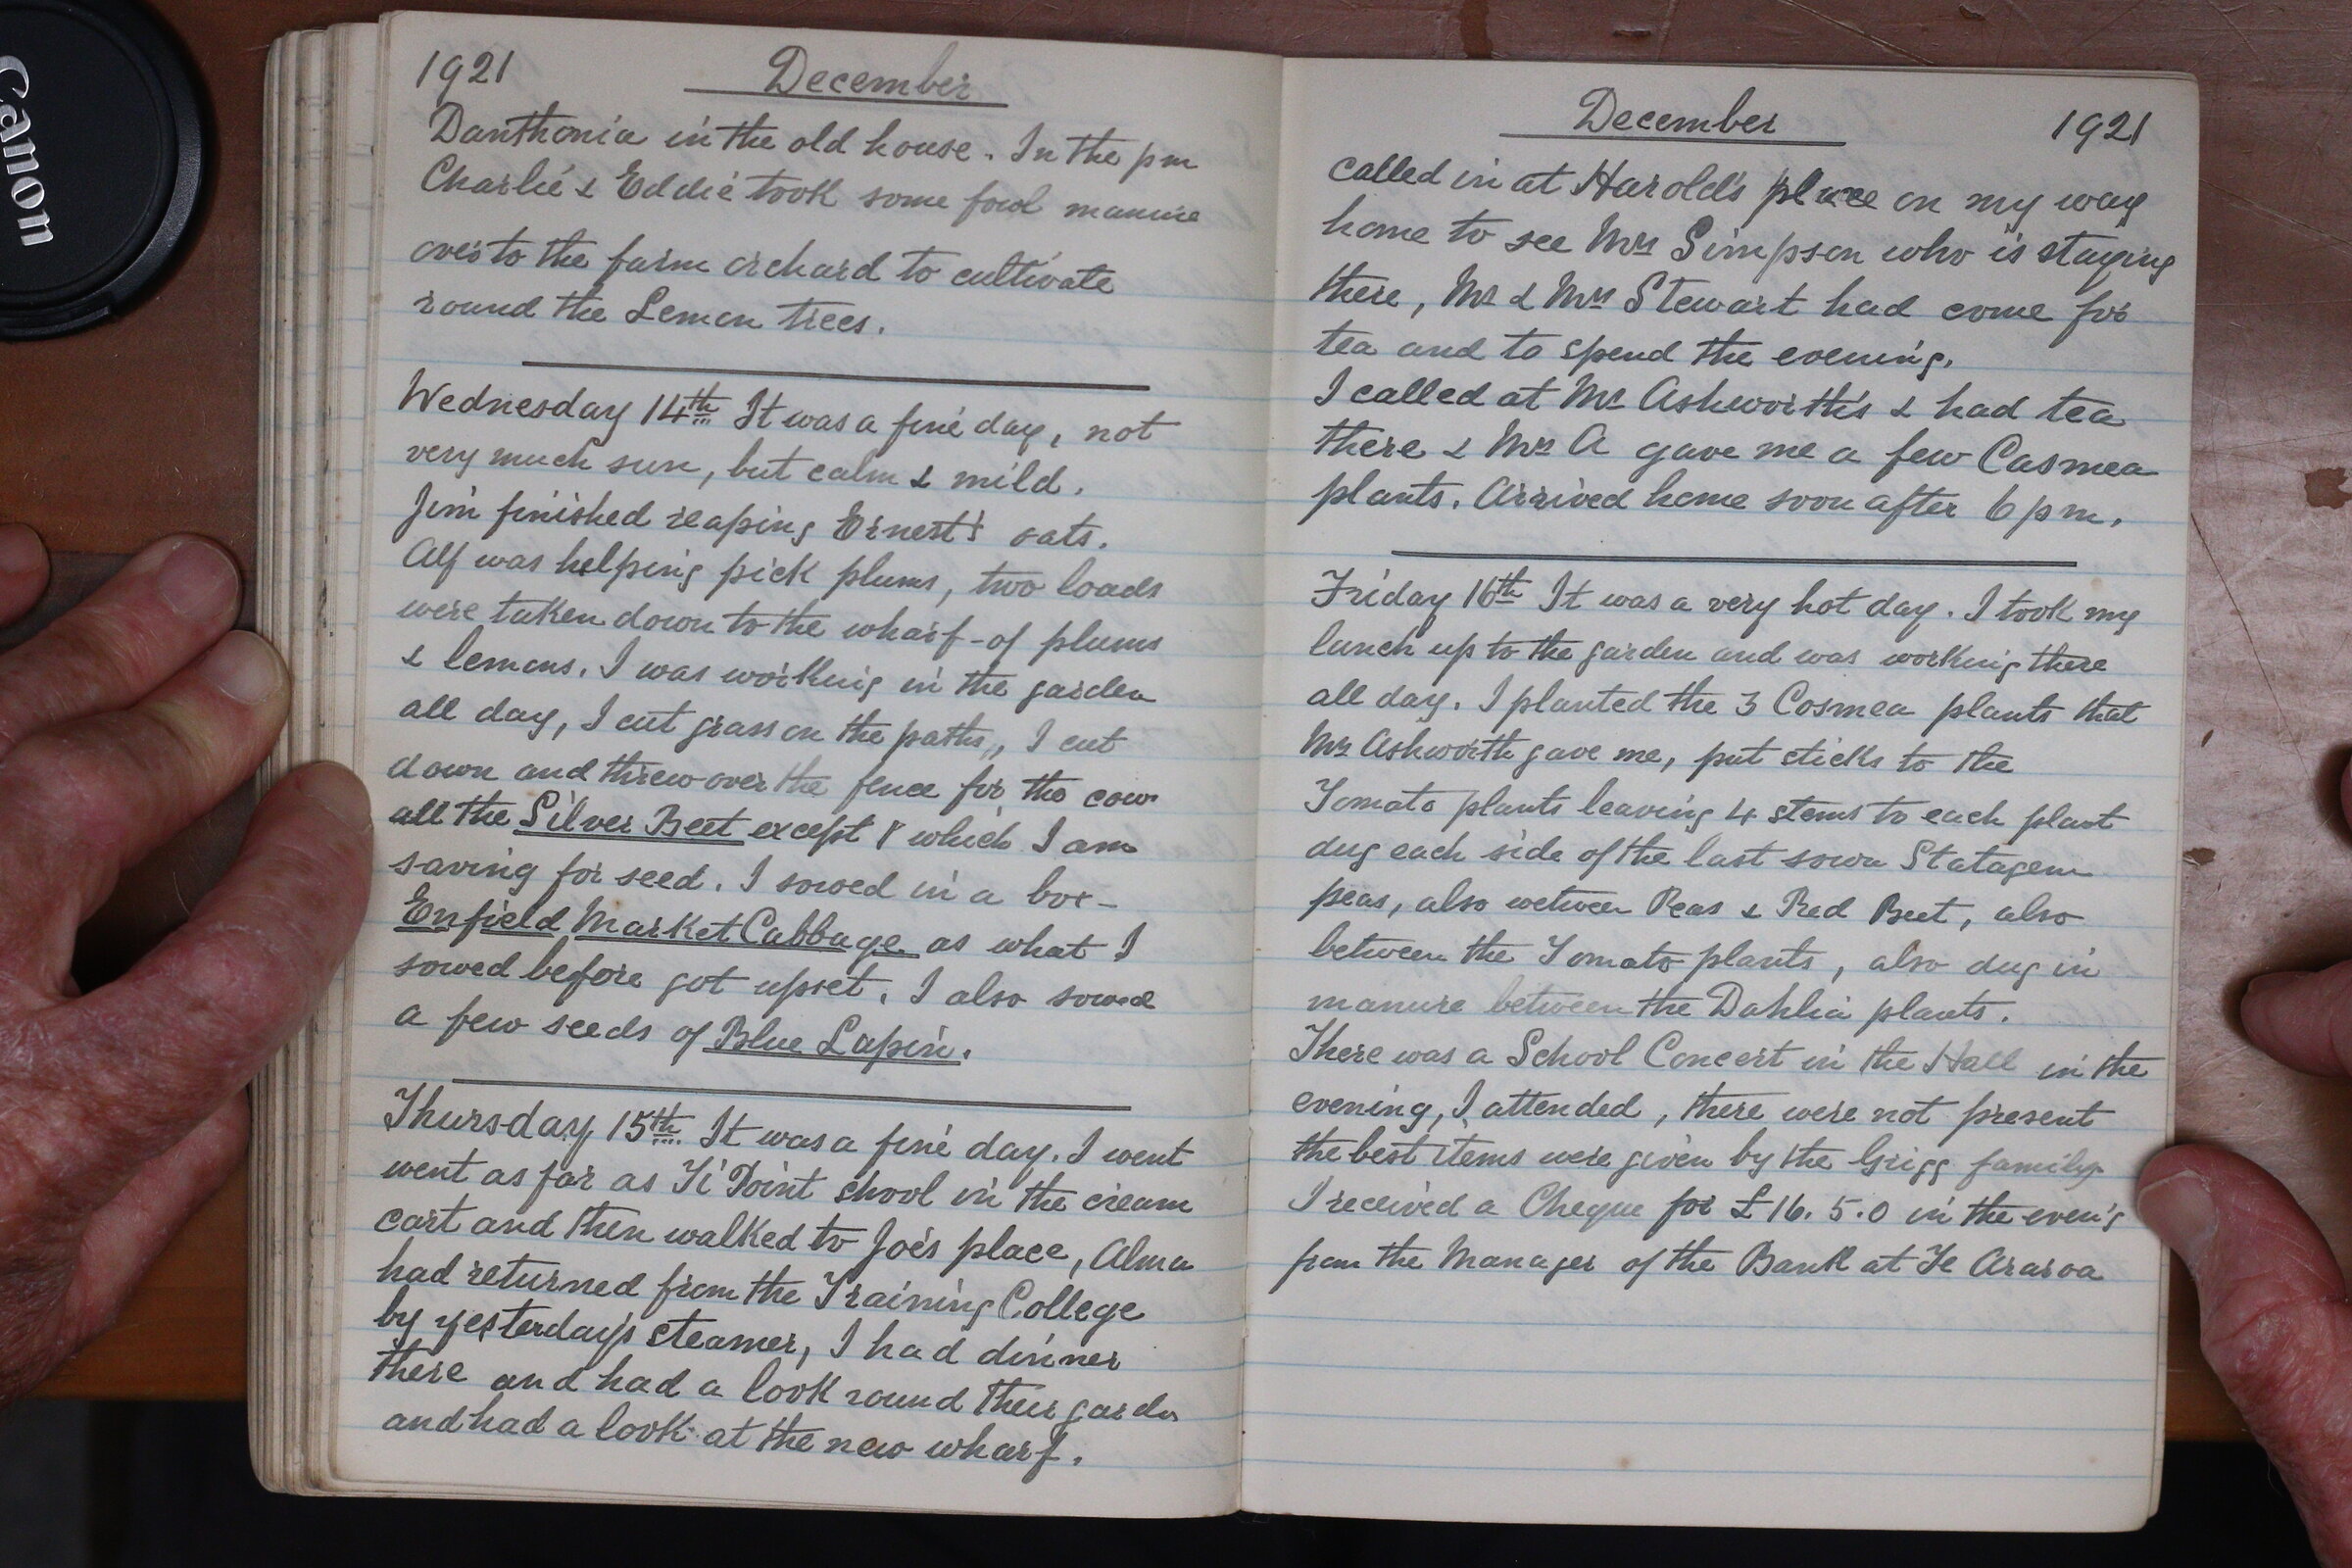 Canon
1921 December
Danthonia in the old house. In the pm
Charlie & Eddie took some fowl manure
over to the farm orchard to cultivate
round the Lemon trees.
Wednesday 14th It was a fine day, not
very much sun, but calm & mild.
Jim finished reaping Ernest's oats.
Alf was helping pick plums, two loads
were taken down to the wharf - of plums
& lemons. I was working in the garden
all day, I cut grass on the paths, I cut
down and threw over the fence for the cow
all the Silver Beet except 8 which I am
saving for seed. I sowed in a box -
Enfield Market Cabbage as what I
sowed before got upset. I also sowed
a few seeds of Blue Lupin.
Thursday 15th It was a fine day. I went
went as far as Ti Point shool in the cream
cart and then walked to Joe's place, Alma
had returned from the Training College
by yesterday's steamer, I had dinner
there and had a look round their garden
and had a look at the new wharf.
December 1921
called in at Harold's place on my way
home to see Mrs Simpson who is staying
there, Mr & Mrs Stewart had come for
tea and to spend the evening.
I called at Mr Ashworth's & had tea
there & Mrs A gave me a few Casmea
plants. Arrived home soon after 6 pm.
Friday 16th It was a very hot day. I took my
lunch up to the garden and was working there
all day. I planted the 3 Cosmea plants that
Mrs Ashworth gave me, put sticks to the
Tomato plants leaving 4 stems to each plant
dug each side of the last sown Statagem
peas, also wetween Peas & Red Beet, also
between the Tomato plants, also dug in
manure between the Dahlia plants.
There was a School Concert in the Hall in the
evening, I attended, there were not present
the best items were given by the Grigg family
I received a Cheque for £16.5.0 in the even'g
from the Manager of the Bank at Te Araroa